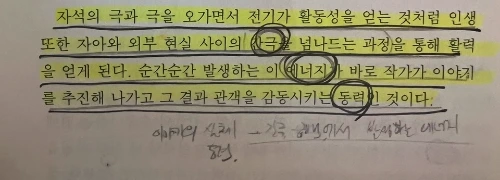 자석의 극과 극을 오가면서 전기가 활동성을 얻는 것처럼 인생
또한 자아와 외부 현실 사이의 간극을 넘나드는 과정을 통해 활력
을 얻게 된다. 순간순간 발생하는 이 에너지가 바로 작가가 이야기
를 추진해 나가고 그 결과 관객을 감동시키는 동력인 것이다.
이야기의 실체 - 간극 에서 발생하는 에너지
동력.